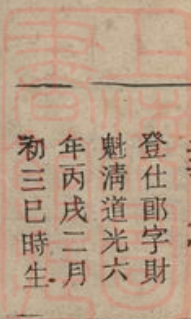 登仕郎字財
魁清道光六
年丙戌二月
初三巳時生